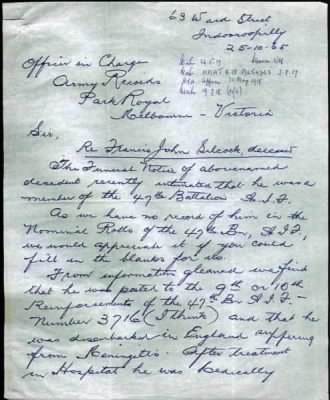 63 Ward Street
Indooroopilly
25-10-65
Officer in Charge
Army Records
Park Royal
Melbourne - Victoria
Sir,
Re Francis John Silcock, deceased
The Funeral Notice of abovenamed
decedent recently intimated that he was a
member of the 47th Battalion A.I.F.
As we have no record of him in the
Nominal Rolls of the 47th Bn, A.I.F,
we would appreciate it if you could
fill in the blanks for us.
From information gleaned we find
that he was posted to the 9th or 10th
Reinforcements of the 47th Bn A.I.F. -
Number 3716 (I think) and that he
was disembarked in England suffering
from Meningitis. After treatment
in Hospital he was medically